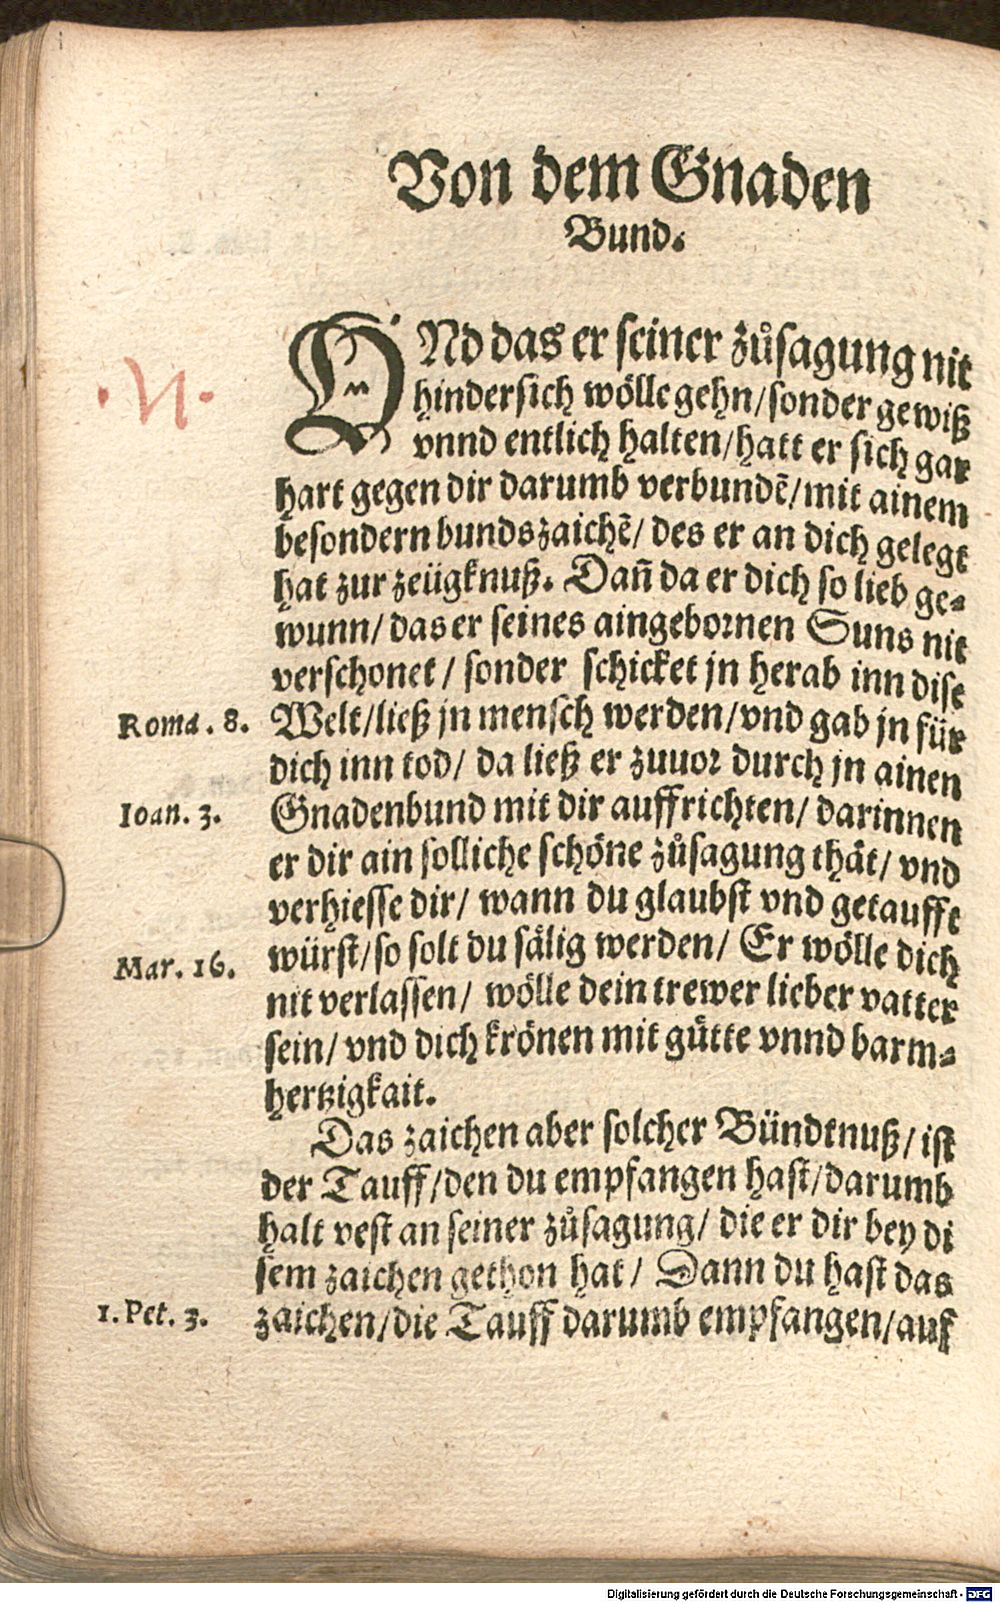 Von dem Gnaden
Bund.
VNd das er seiner zůsagung nit
hindersich wölle gehn/sonder gewiß
vnnd entlich halten/hatt er sich gar
hart gegen dir darumb verbundẽ/mit ainem
besondern bundszaichẽ/ des er an dich gelegt
hat zur zeügknuß. Dañ da er dich so lieb ge⸗
wunn/ das er seines aingebornen Suns nit
verschonet / sonder schicket jn herab inn dise
Roma. 8. Welt/ließ jn mensch werden/vnd gab jn für
dich inn tod/ da ließ er zuuor durch jn ainen
Ioan. 3. Gnadenbund mit dir auffrichten/ darinnen
er dir ain solliche schöne zůsagung thät/ vnd
verhiesse dir/ wann du glaubst vnd getaufft
Mar. 16. würst/so solt du sälig werden/ Er wölle dich
nit verlassen/ wölle dein trewer lieber vatter
sein/ vnd dich krönen mit gütte vnnd barm⸗
hertzigkait.
Das zaichen aber solcher Bündtnuß/ ist
der Tauff/den du empfangen hast/darumb
halt vest an seiner zůsagung/ die er dir bey di
sem zaichen gethon hat/ Dann du hast das
1. Pet. 3. zaichen/die Tauff darumb empfangen/auf
Digitalisierung gefördert durch die Deutsche Forschungsgemeinschaft - DFG